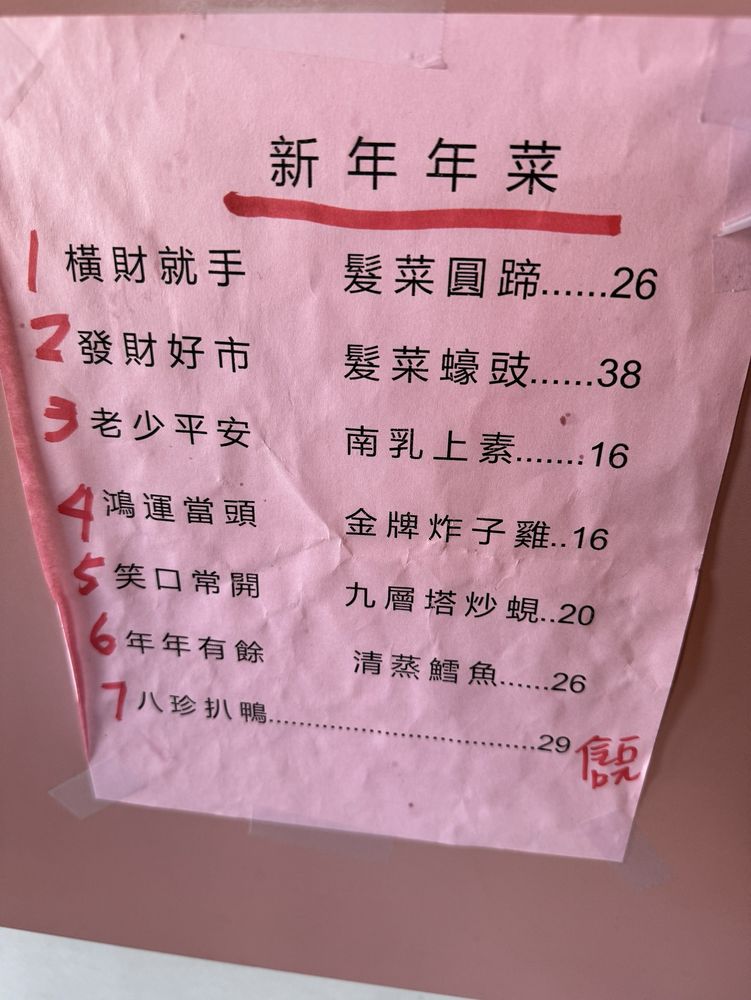 新年年菜
1 橫財就手 髮菜圓蹄......26
2 發財好市 髮菜蠔豉......38
3 老少平安 南乳上素.......16
4 鴻運當頭 金牌炸子雞..16
5 笑口常開 九層塔炒蜆..20
6 年年有餘 清蒸鱈魚......26
7 八珍扒鴨..................................29